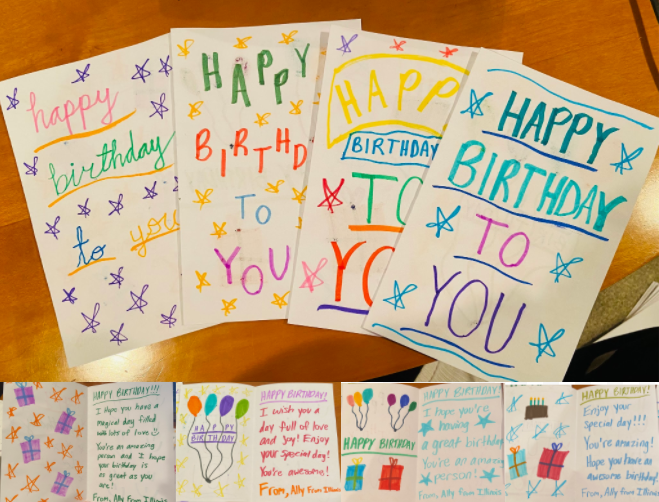 happy
birthday
to you
HAPPY
BIRTHD
TO
YOU
HAPP
BIRTHDAY
TO
YO
HAPPY
BIRTHDAY
TO
YOU
HAPPY BIRTHDAY!!!
I hope you have a
magical day filled
with lots of love
You're an amazing
person and I hope
your birthday is
as great as you
are!
From, Ally From Illinois
HAPPY
BIRTHDAY
HAPPY BIRTHDAY!
I wish you a
day full of love
and joy! Enjoy
your special day!
You're awesome!
From, Ally From Illinois
HAPPY BIRTHDAY
HAPPY BIRTHDAY!
I hope you're
having
a great birthday
You're an amazing
person!
From, Ally From Illinois
HAPPY BIRTHDAY!
Enjoy your
special day!!!
You're amazing!
Hope you have an
awesome birthday!
From, Ally From Illinois